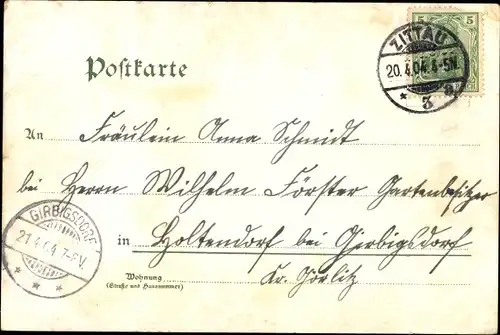 5 5
ZITTAU
20.4.04. 4-5N.
* 3 a
Postkarte
An Fräulein Anna Schmidt
bei Herrn Wilhelm Förster Gartenbesitzer
GIRBIGSDORF
21.4.04 7-8V.
* * *
in Holtendorf bei Girbigsdorf
Kr. Görlitz
Wohnung
(Straße und Hausnummer)